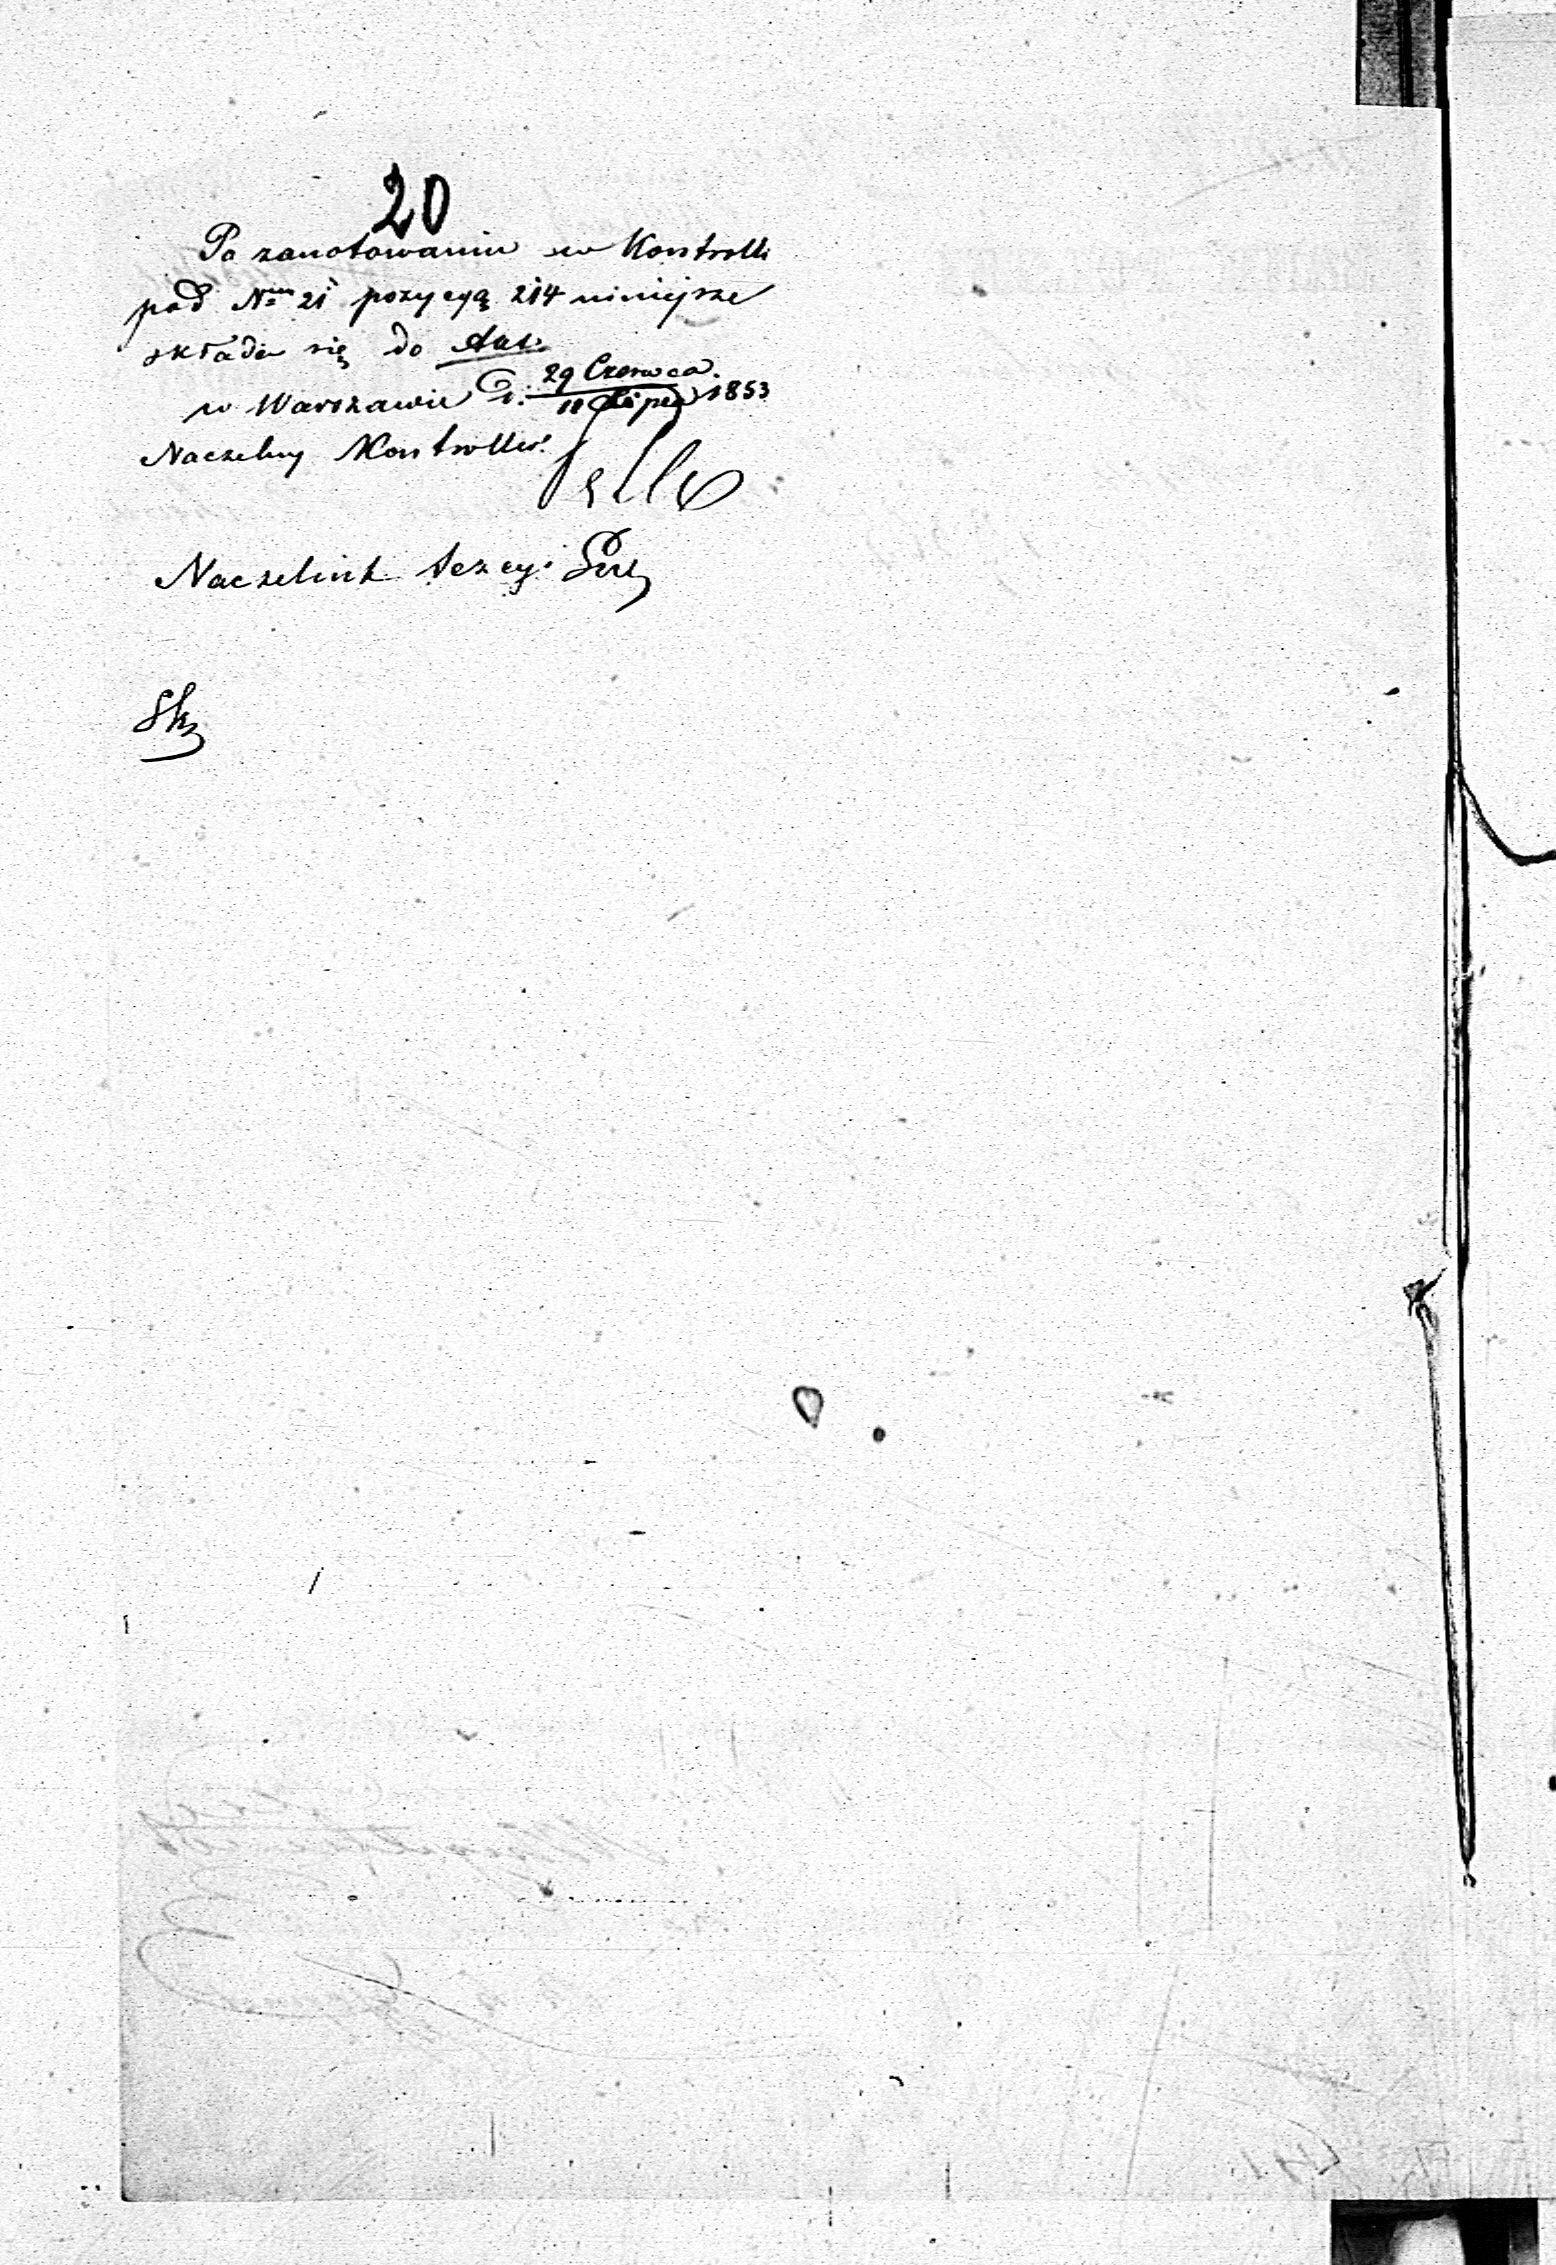 20
Po zanotowaniu w Kontrolli
pod Nrem 21 pozycyą 214 niniejsze
składa się do Akt.
w Warszawie d. 29 Czerwca 1853
11 Lipca
Naczelny Kontroller
Naczelnik Sekcyi